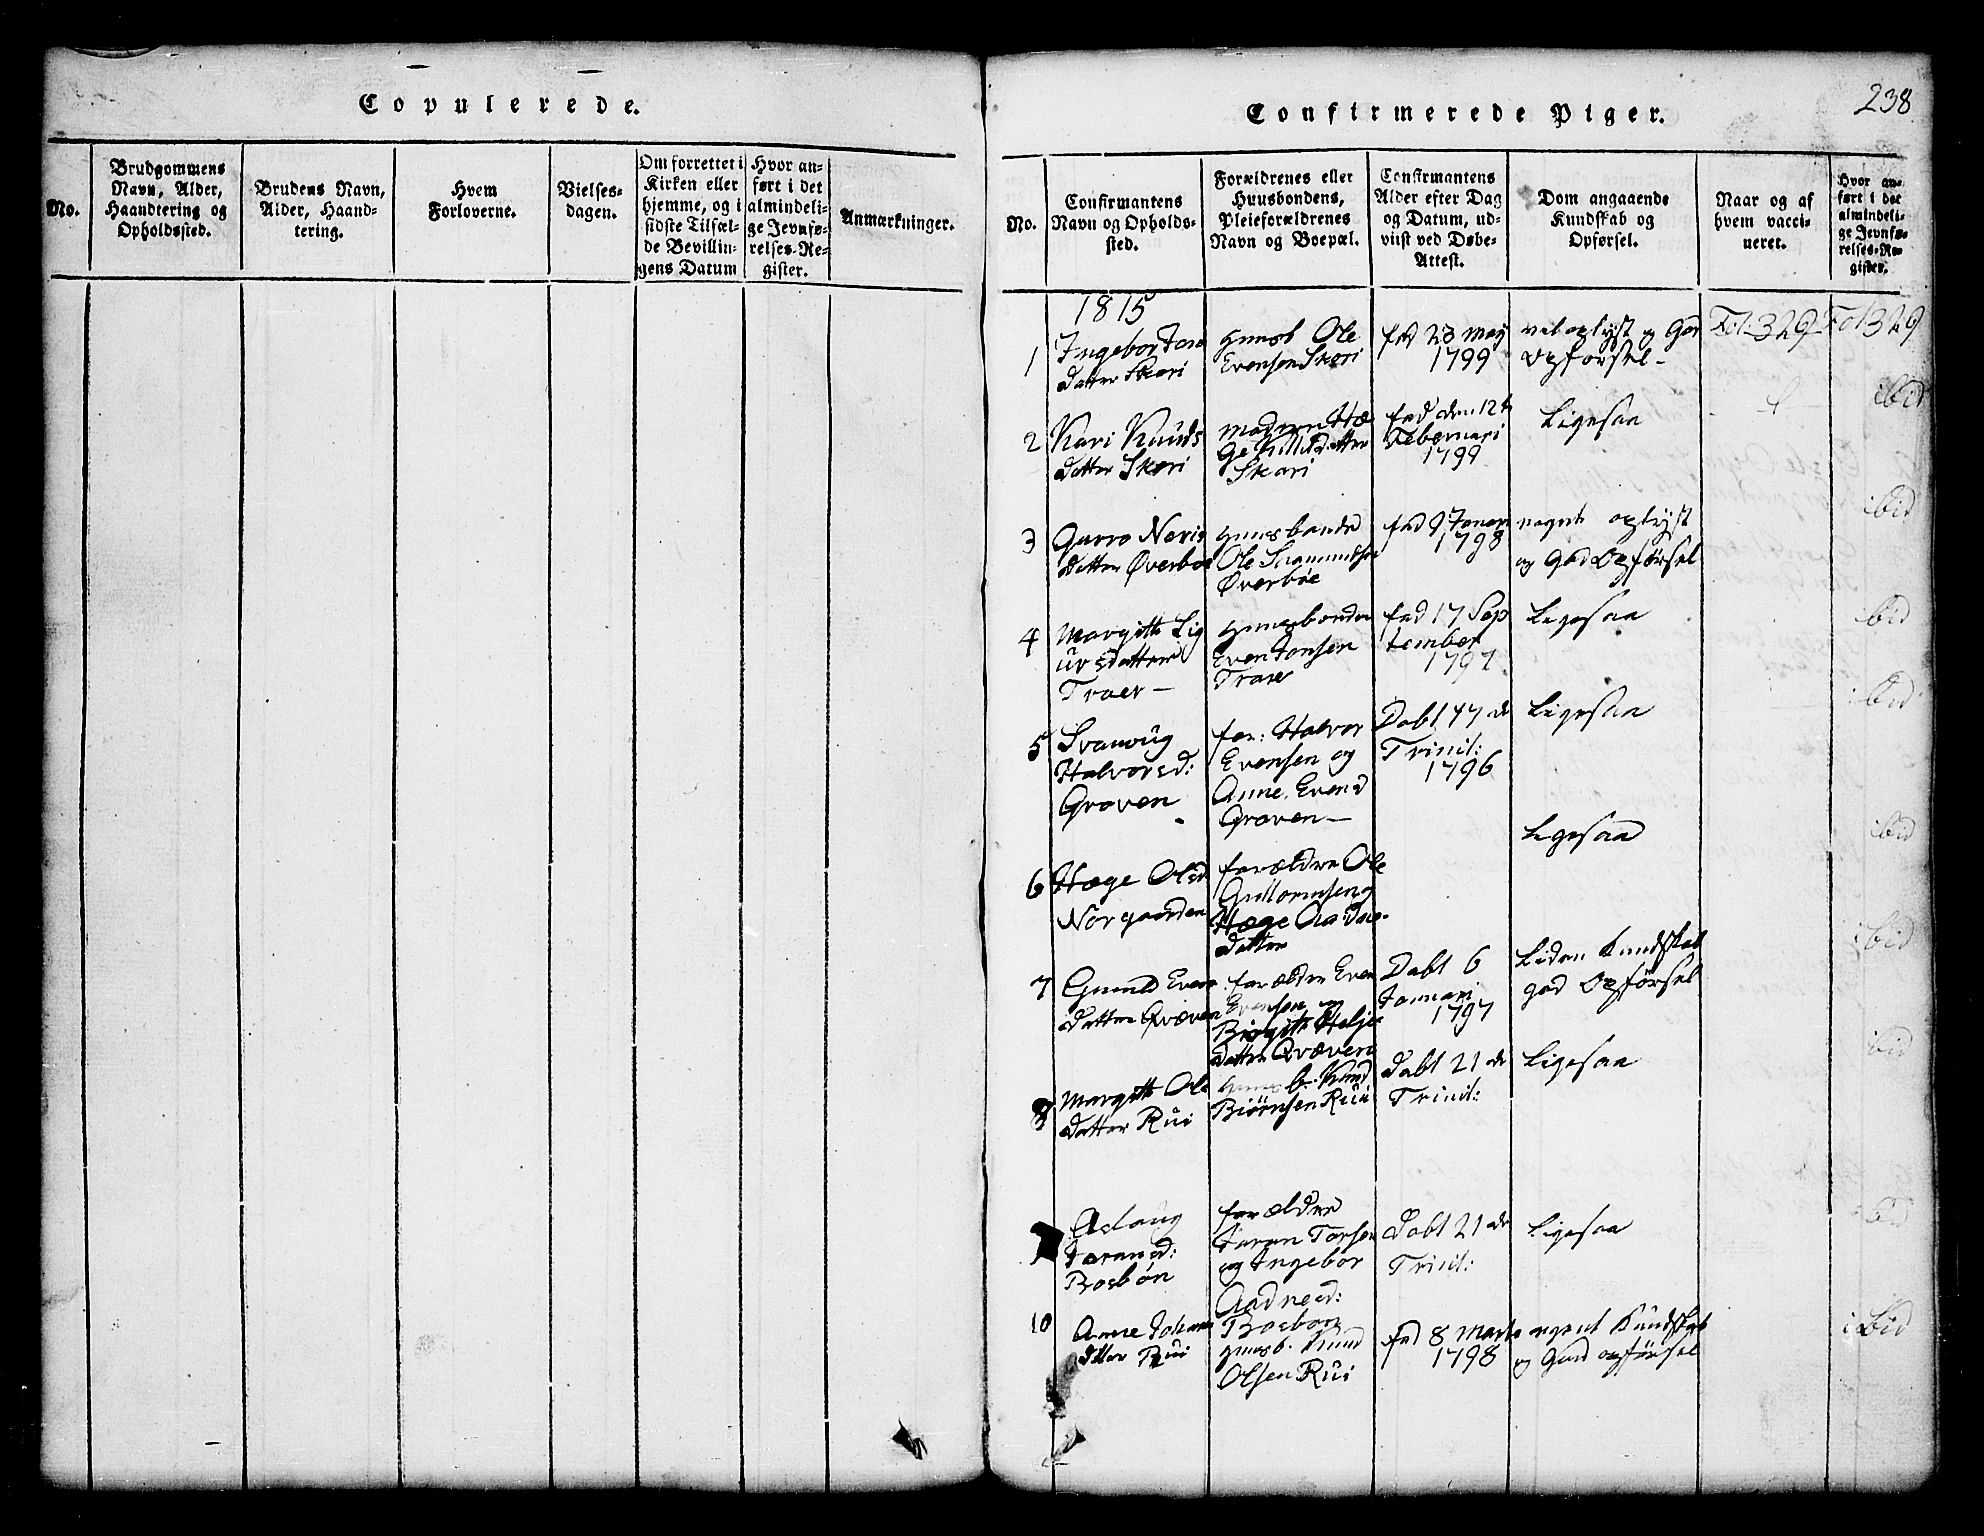 Copulerede.
No.
Brudgommens
Navn, Alder,
Haandtering og
Opholdssted.
Brudens Navn,
Alder, Haand-
tering.
Hvem
Forloverne.
Vielses-
dagen.
Om forrettet i
Kirken eller
hjemme, og i
sidste Tilfæl-
de Bevillin-
gens Datum
Hvor an-
ført i det
almindeli-
ge Jevnfø-
relses-Re-
gister.
Anmærkninger.
238
Confirmerede Piger.
No.
Confirmantens
Navn og Opholds-
sted.
Forældrenes eller
Huusbondens,
Pleieforældrenes
Navn og Boepæl.
Confirmantens
Alder efter Dag
og Datum, ud-
viist ved Døbe-
Attest.
Dom angaaende
Kundskab og
Opførsel.
Naar og af
hvem vacci-
neret.
Hvor an-
ført i det
almindeli-
ge Jevnfø-
relses-Re-
gister.
1815
1
Ingebor
datter Skori
Huusb Ole
Evensen Skori
fød 23 May
1799
vel oplyst og God
Opførsel -
Fol 329
Fol 329
2
Kari Knuds
datter Skori
Skori
fød den 12te
Februari
1799
Ligesaa
ibid
3
datter Øverbøe
Huusbonde
Ole
Øverbøe
fød 9 Januari
1798
oplyst
og God Opførsel
ibid
4
Margith
datter
Traer -
Huusbonden
Even Jonsen
Traer
fød 17 Sep
tember
1797
Ligesaa
ibid
5
Svanoug
Halvorsd:
Groven
for: Halvor
Evensen og
Anne Evensd
Groven -
Døbt 17 de
Trinit:
1796
Ligesaa
ibid
6
Hæge Olsd
Norgaarden
forældre Ole
Guttormsen og
Hæge
datter
Ligesaa
ibid
7
Gunild Evens
datter Qvæven
forældre Even
Evensen og
Birgith Helje
datter Qvæven
Døbt 6
Januari
1797
Liden Kundskab
god Opførsel
ibid
8
Margith Ols
datter Rui
Huusb. Knud
Biørnsen Rui
Døbt 21 de
Trinit:
Ligesaa
ibid
Aslaug
Joransd:
Bosbøn
forældre
Joran Torsen
og Ingebor
Aadnesd:
Bosbøn
Døbt 21 de
Trinit:
Ligesaa
ibid
10
Anne Johans
datter Rui
Huusb. Knud
Olsen Rui
fød 8 Marts
1798
Kundskab
og God opførsel
ibid